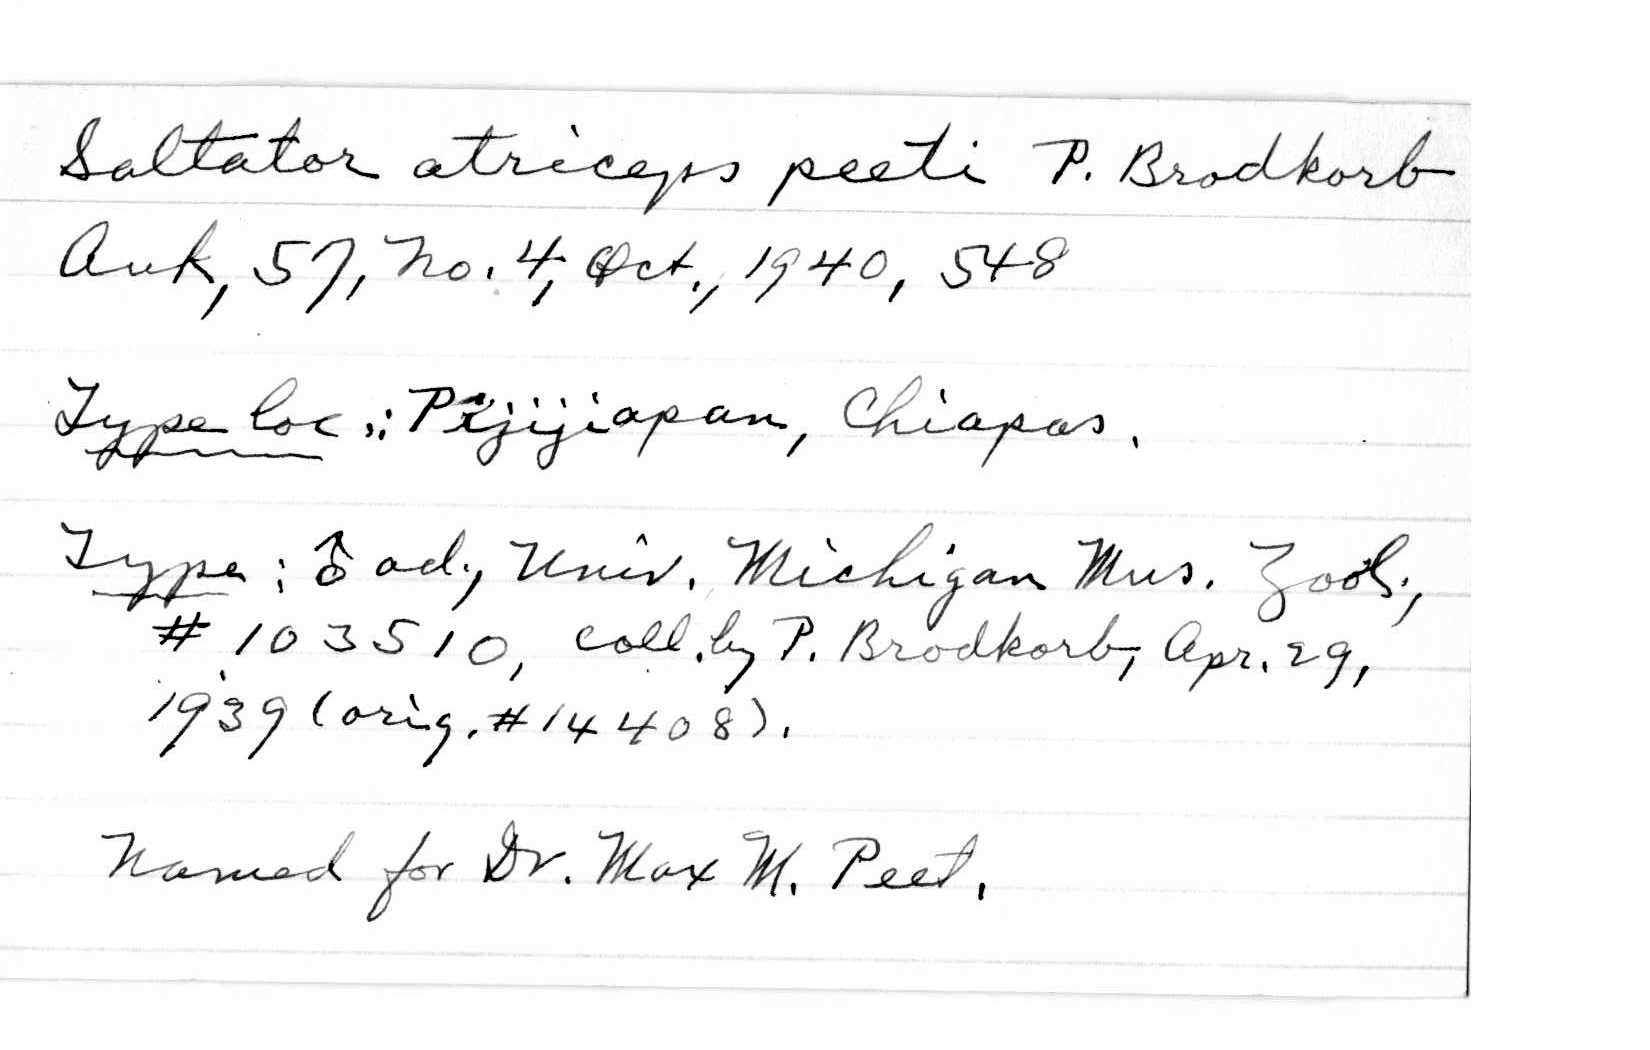 Saltator atriceps peeti P. Brodkorb
Auk, 57, No. 4, Oct., 1940, 548
Type loc.: Pijijiapan, Chiapas.
Type: ♂ ad., Univ. Michigan Mus. Zool.,
# 103510, coll. by P. Brodkorb, Apr. 29,
1939 (orig. # 14408).
Named for Dr. Max M. Peet.